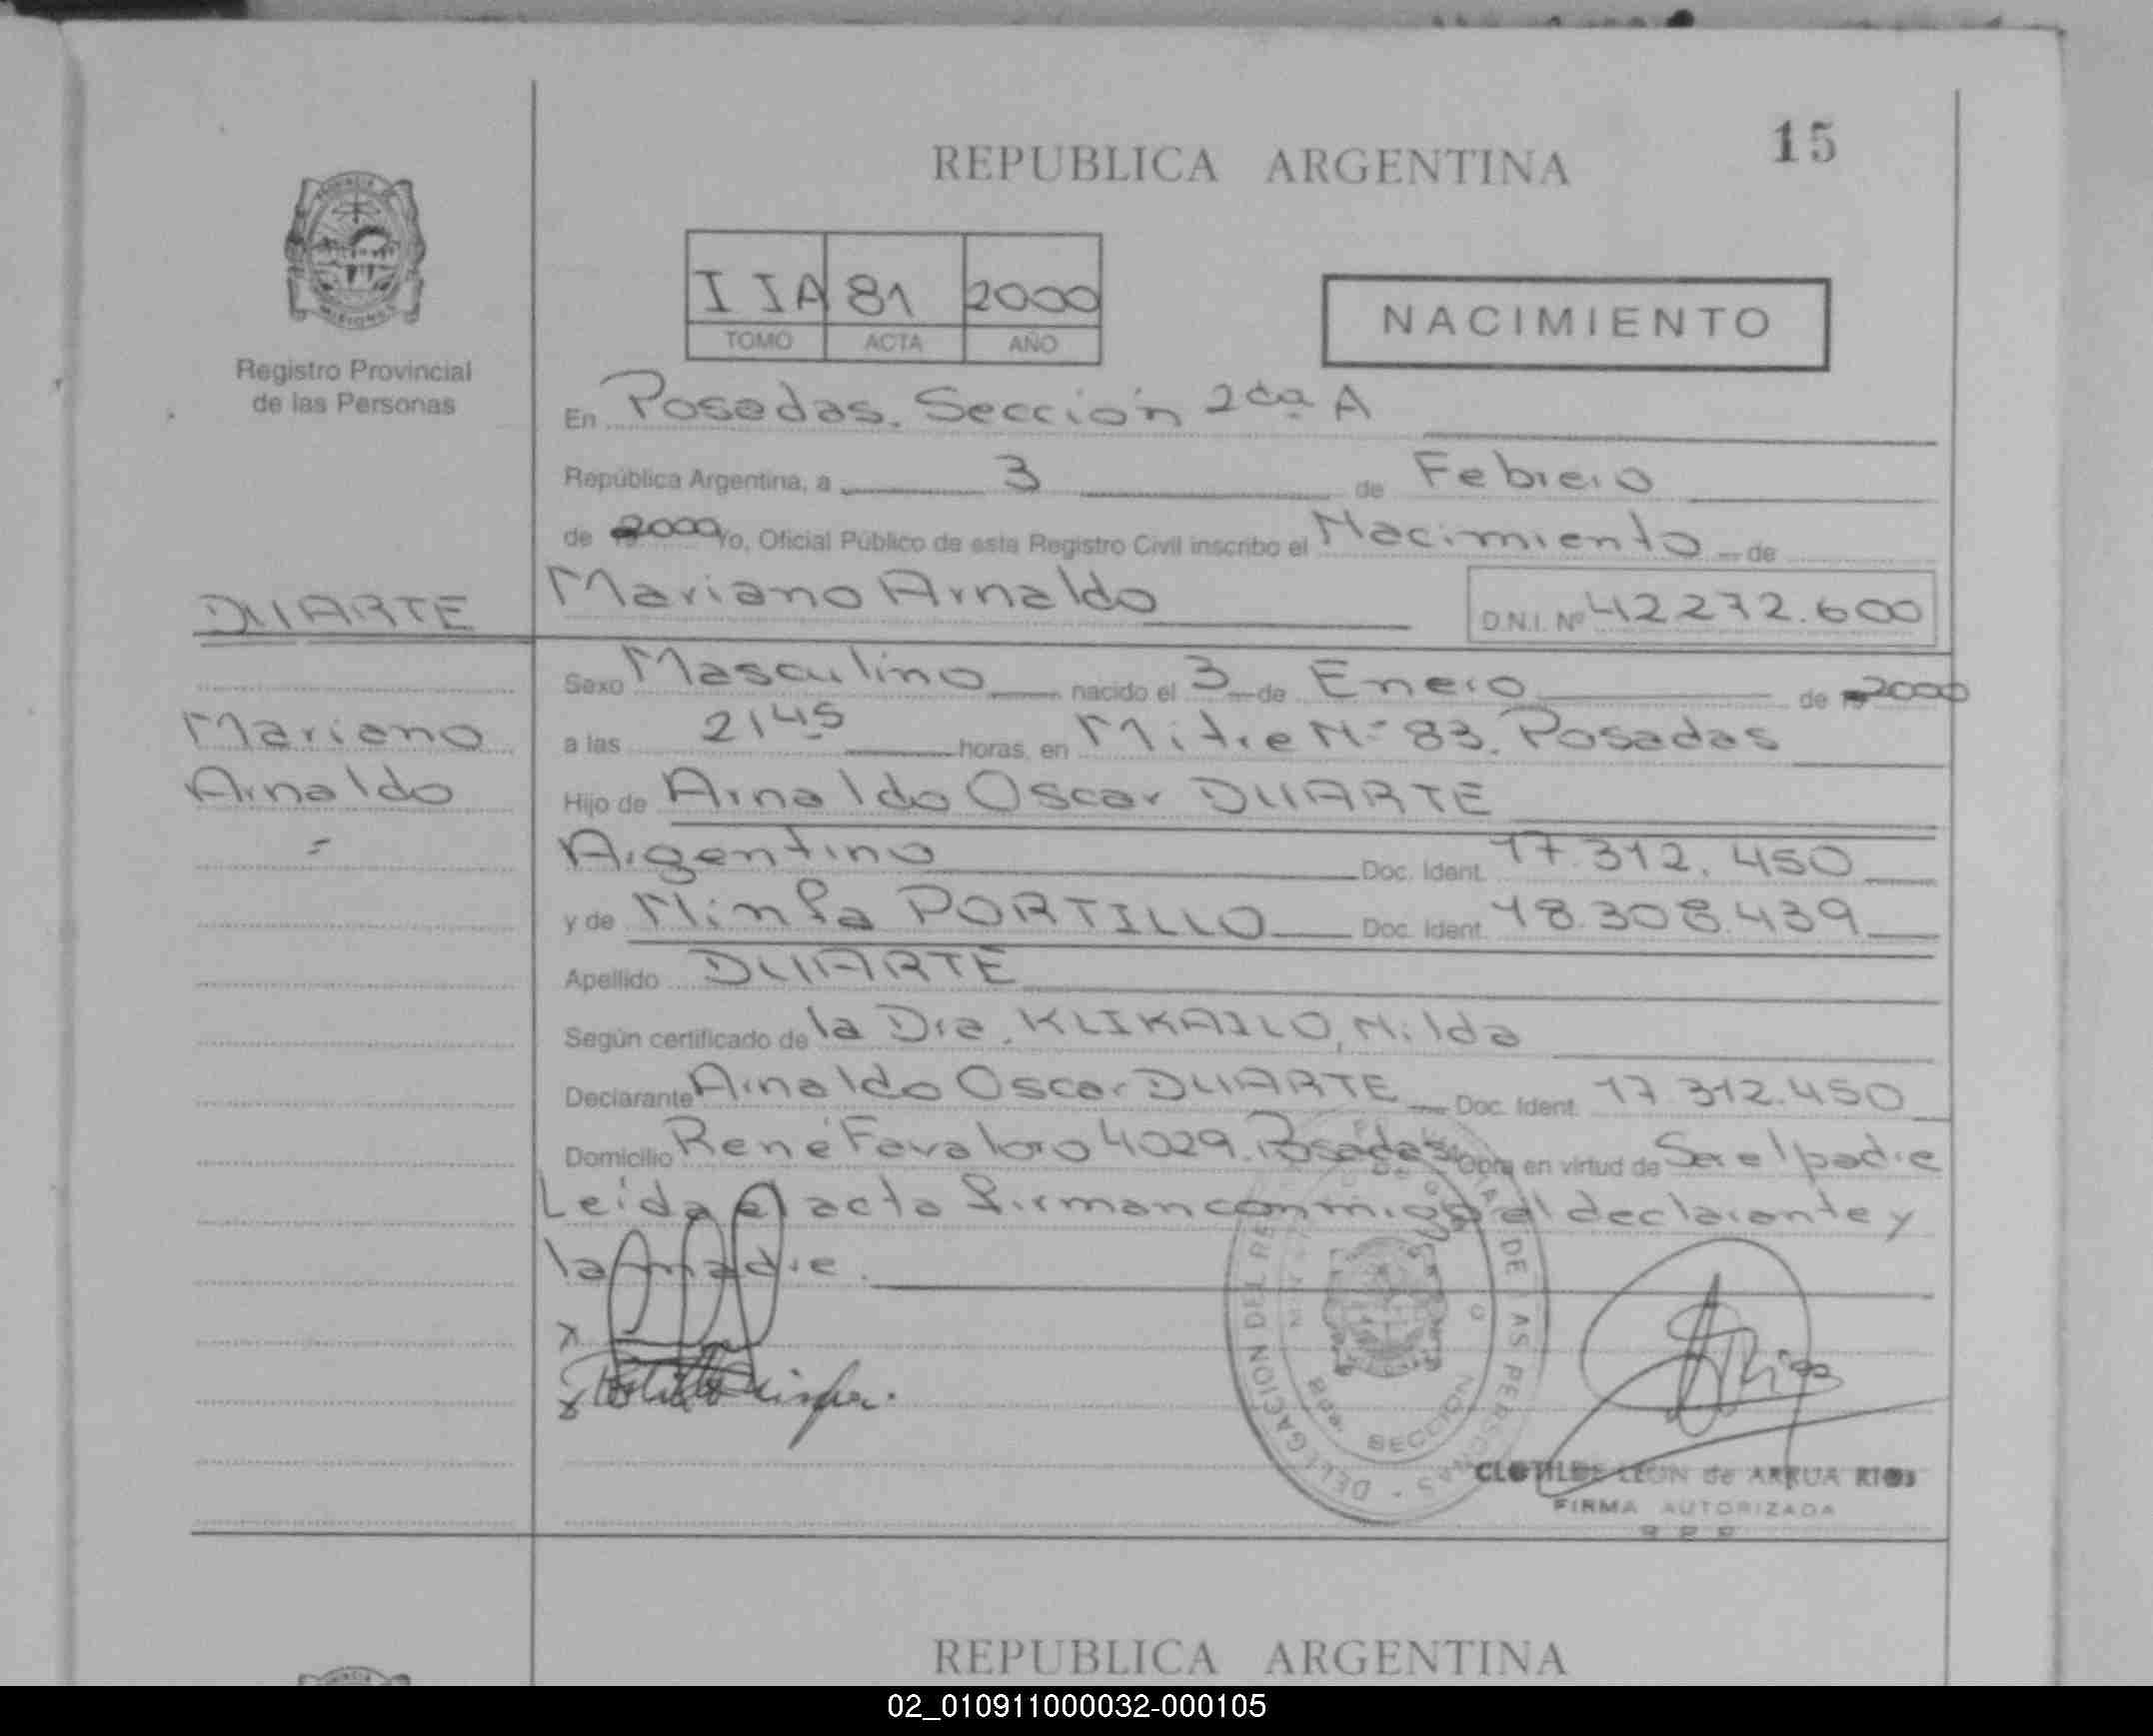 15
REPUBLICA ARGENTINA
PROVINCIA
MISIONES
Registro Provincial
de las Personas
I IA 81 2000
TOMO ACTA AÑO
NACIMIENTO
En Posadas. Sección 2da A
República Argentina, a 3 de Febrero
de 2000 Yo, Oficial Público de esta Registro Civil inscribo el Nacimiento de
DUARTE
Mariano Arnaldo
D.N.I. Nº 42272.600
Sexo Masculino nacido el 3 de Enero de 2000
Mariano
Arnaldo
=
a las 2145 horas, en Mitre Nº 83. Posadas
Hijo de Arnaldo Oscar DUARTE
Argentino Doc. Ident. 17.312.450
y de Ninfa PORTILLO Doc. Ident. 18.308.439
Apellido DUARTE
Según certificado de la Dra. KLIKAILO, Nilda
Declarante Arnaldo Oscar DUARTE Doc. Ident. 17 312.450
Domicilio René Favaloro 4029. Posadas Obra en virtud de Ser el padre
Leída el acta firman conmigo el declarante y
la madre.
x
x Portillo Ninfa.
DELEGACION DEL DE LAS PERSONAS
SECCION
CLOTILDE LEON de ARRUA RIOS
FIRMA AUTORIZADA
REPUBLICA ARGENTINA
02_010911000032-000105